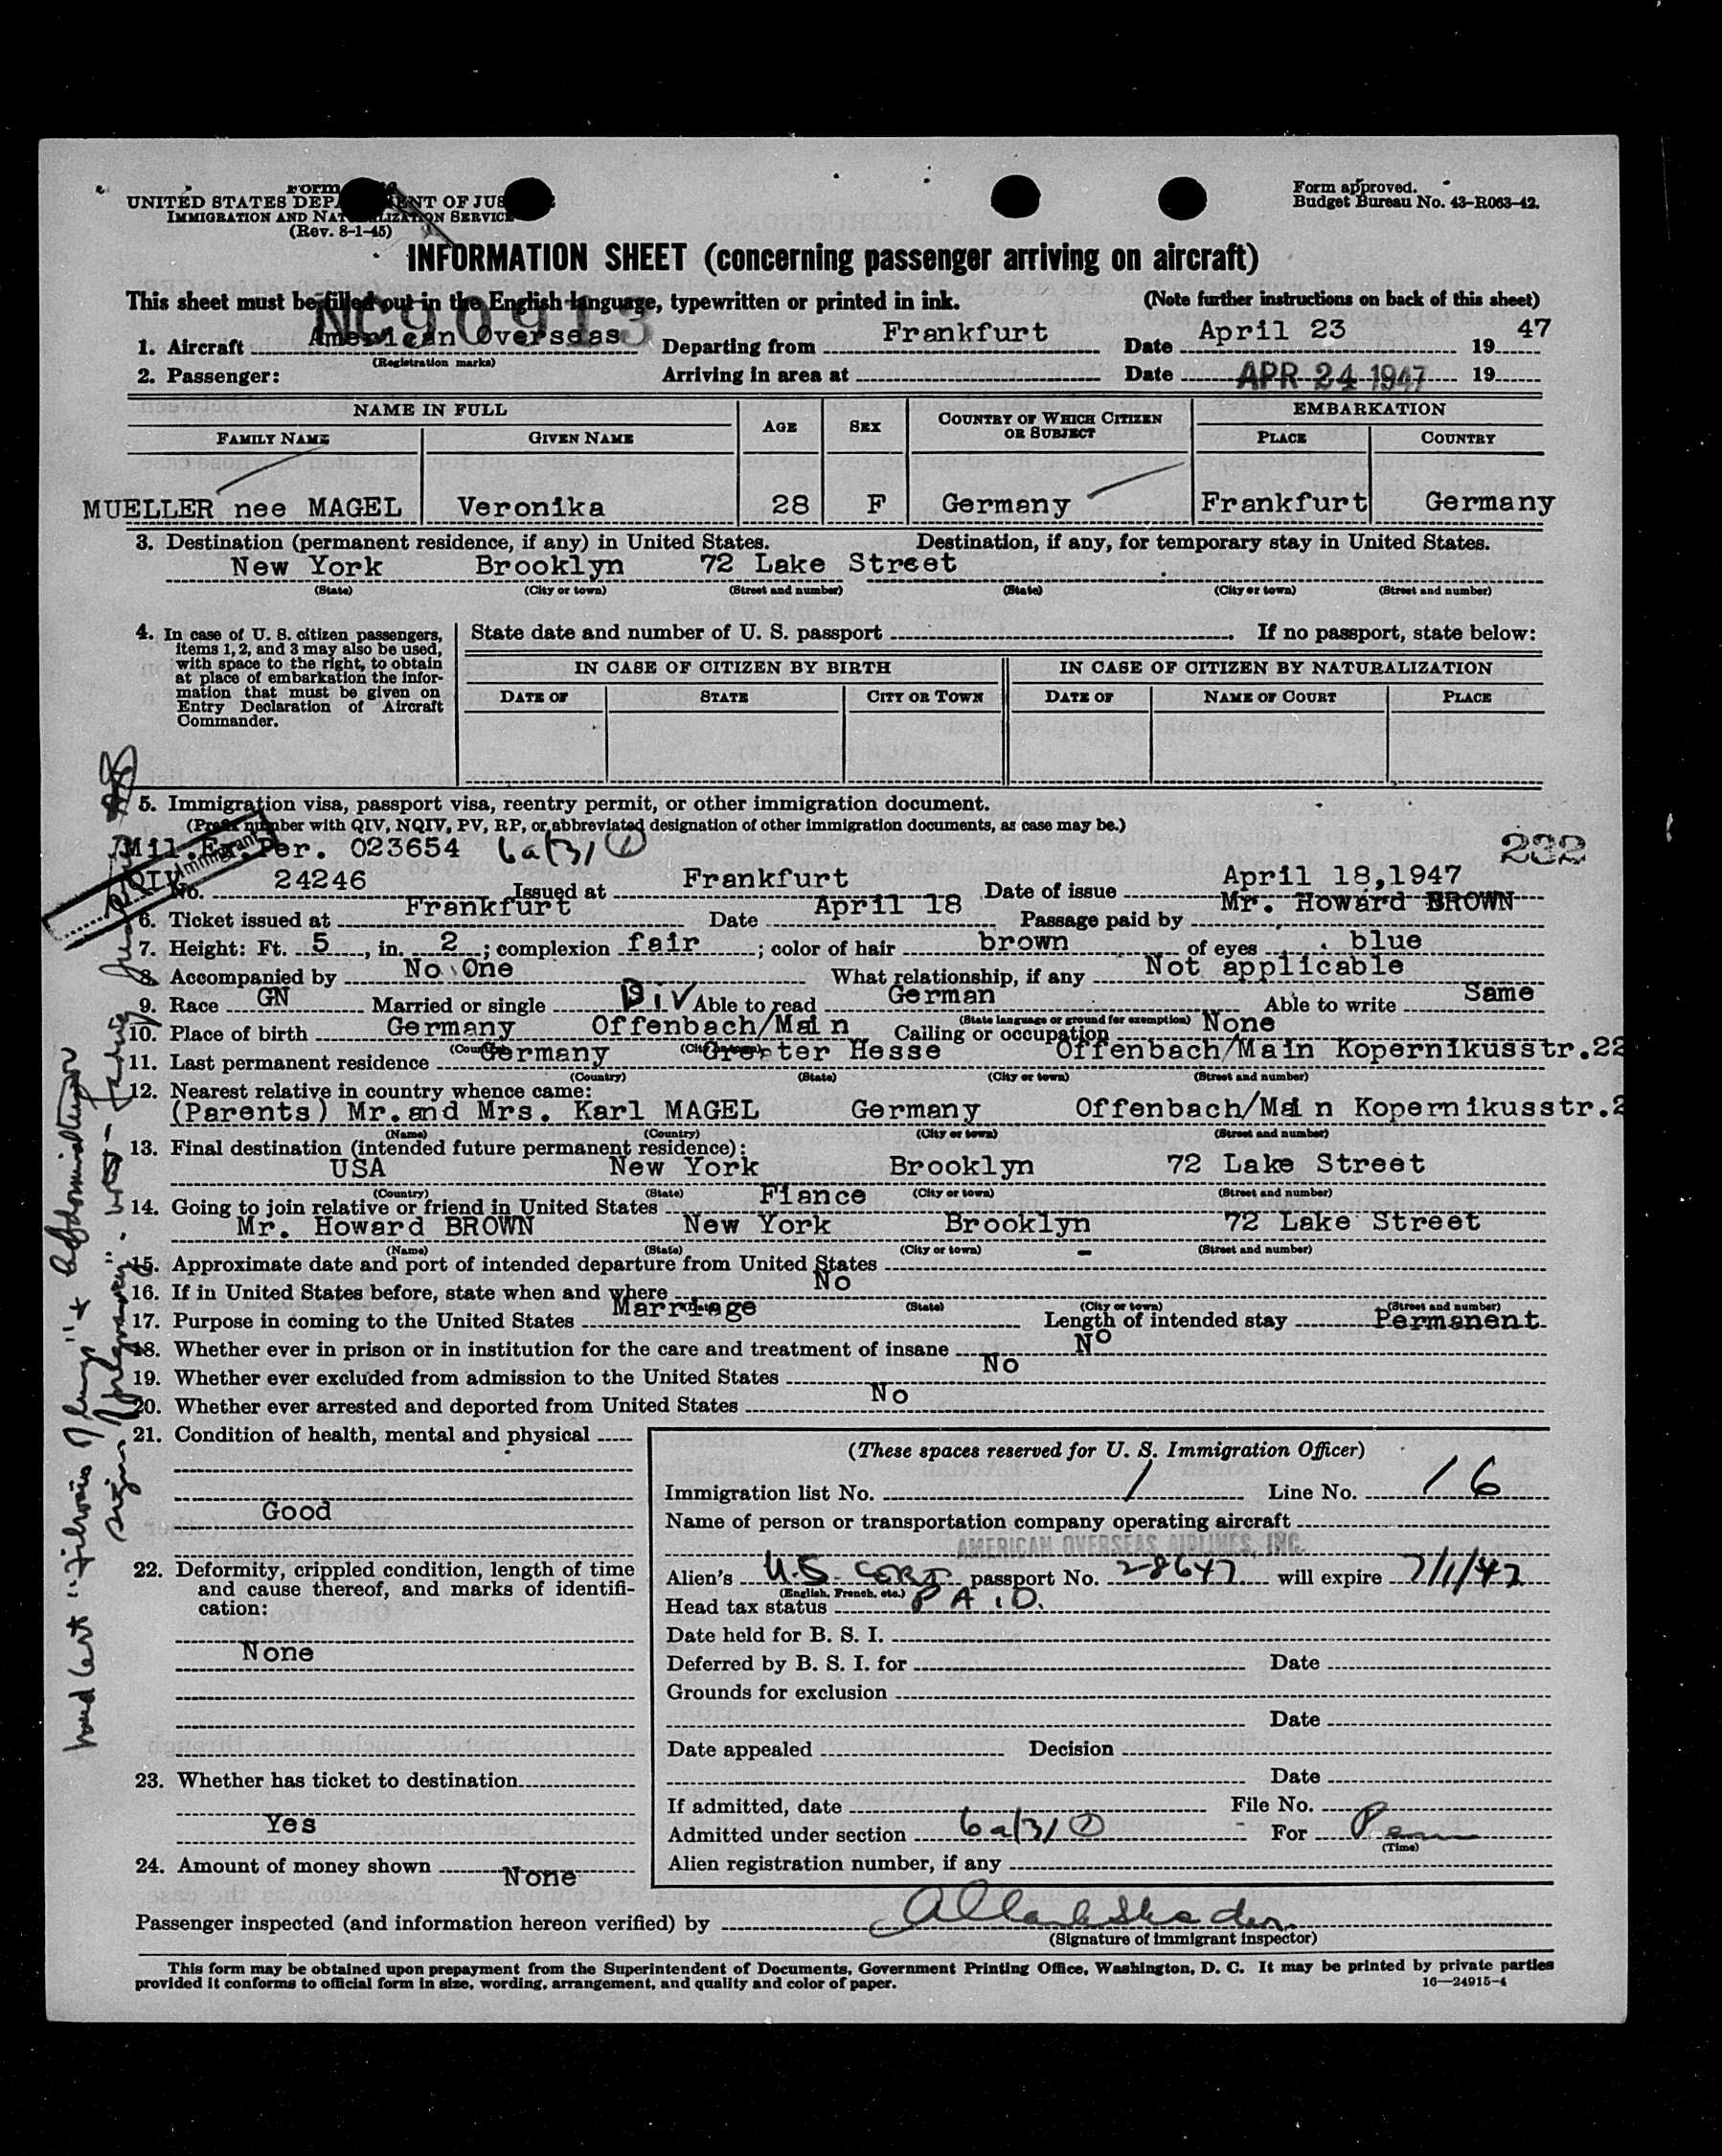 Form
UNITED STATES DEPARTMENT OF JUSTICE
IMMIGRATION AND NATURALIZATION SERVICE
(Rev. 8-1-45)
Form approved.
Budget Bureau No. 43-R063-42.
INFORMATION SHEET (concerning passenger arriving on aircraft)
This sheet must be filled out in the English language, typewritten or printed in ink. (Note further instructions on back of this sheet)
NC90913
1. Aircraft American Overseas Departing from Frankfurt Date April 23 1947
(Registration marks)
2. Passenger: Arriving in area at Date APR 24 1947 19
NAME IN FULL AGE SEX COUNTRY OF WHICH CITIZEN OR SUBJECT EMBARKATION
FAMILY NAME GIVEN NAME PLACE COUNTRY
MUELLER nee MAGEL Veronika 28 F Germany Frankfurt Germany
3. Destination (permanent residence, if any) in United States. Destination, if any, for temporary stay in United States.
New York Brooklyn 72 Lake Street
(State) (City or town) (Street and number) (State) (City or town) (Street and number)
4. In case of U. S. citizen passengers, items 1, 2, and 3 may also be used, with space to the right, to obtain at place of embarkation the information that must be given on Entry Declaration of Aircraft Commander.
State date and number of U. S. passport If no passport, state below:
IN CASE OF CITIZEN BY BIRTH IN CASE OF CITIZEN BY NATURALIZATION
DATE OF STATE CITY OR TOWN DATE OF NAME OF COURT PLACE
5. Immigration visa, passport visa, reentry permit, or other immigration document.
(Prefix number with QIV, NQIV, PV, RP, or abbreviated designation of other immigration documents, as case may be.)
Mil.En.Per. 023654 6a(3)(1) 232
QIV Immigrant
No. 24246 Issued at Frankfurt Date of issue April 18,1947
6. Ticket issued at Frankfurt Date April 18 Passage paid by Mr. Howard BROWN
7. Height: Ft. 5, in. 2; complexion fair; color of hair brown of eyes blue
8. Accompanied by No One What relationship, if any Not applicable
9. Race GN Married or single DIV Able to read German Able to write Same
(State language or ground for exemption)
10. Place of birth Germany Offenbach/Main Calling or occupation None
(Country) (City or town)
11. Last permanent residence Germany Greater Hesse Offenbach/Main Kopernikusstr.22
(Country) (State) (City or town) (Street and number)
12. Nearest relative in country whence came:
(Parents) Mr.and Mrs. Karl MAGEL Germany Offenbach/Main Kopernikusstr.2
(Name) (Country) (City or town) (Street and number)
13. Final destination (intended future permanent residence):
USA New York Brooklyn 72 Lake Street
(Country) (State) (City or town) (Street and number)
14. Going to join relative or friend in United States Fiance
Mr. Howard BROWN New York Brooklyn 72 Lake Street
(Name) (State) (City or town) (Street and number)
15. Approximate date and port of intended departure from United States -
16. If in United States before, state when and where No
(State) (City or town) (Street and number)
17. Purpose in coming to the United States Marriage Length of intended stay Permanent
18. Whether ever in prison or in institution for the care and treatment of insane No
19. Whether ever excluded from admission to the United States No
20. Whether ever arrested and deported from United States No
21. Condition of health, mental and physical
Good
22. Deformity, crippled condition, length of time and cause thereof, and marks of identification:
None
23. Whether has ticket to destination
Yes
24. Amount of money shown None
(These spaces reserved for U. S. Immigration Officer)
Immigration list No. 1 Line No. 16
Name of person or transportation company operating aircraft
AMERICAN OVERSEAS AIRLINES, INC.
Alien's U.S. CERT passport No. 28647 will expire 7/1/47
(English, French, etc.)
Head tax status PAID.
Date held for B. S. I.
Deferred by B. S. I. for Date
Grounds for exclusion
Date
Date appealed Decision
Date
If admitted, date File No.
Admitted under section 6a(3)(1) For Perm
(Time)
Alien registration number, if any
Passenger inspected (and information hereon verified) by
(Signature of immigrant inspector)
This form may be obtained upon prepayment from the Superintendent of Documents, Government Printing Office, Washington, D. C. It may be printed by private parties
provided it conforms to official form in size, wording, arrangement, and quality and color of paper. 16—24915-4
med cert